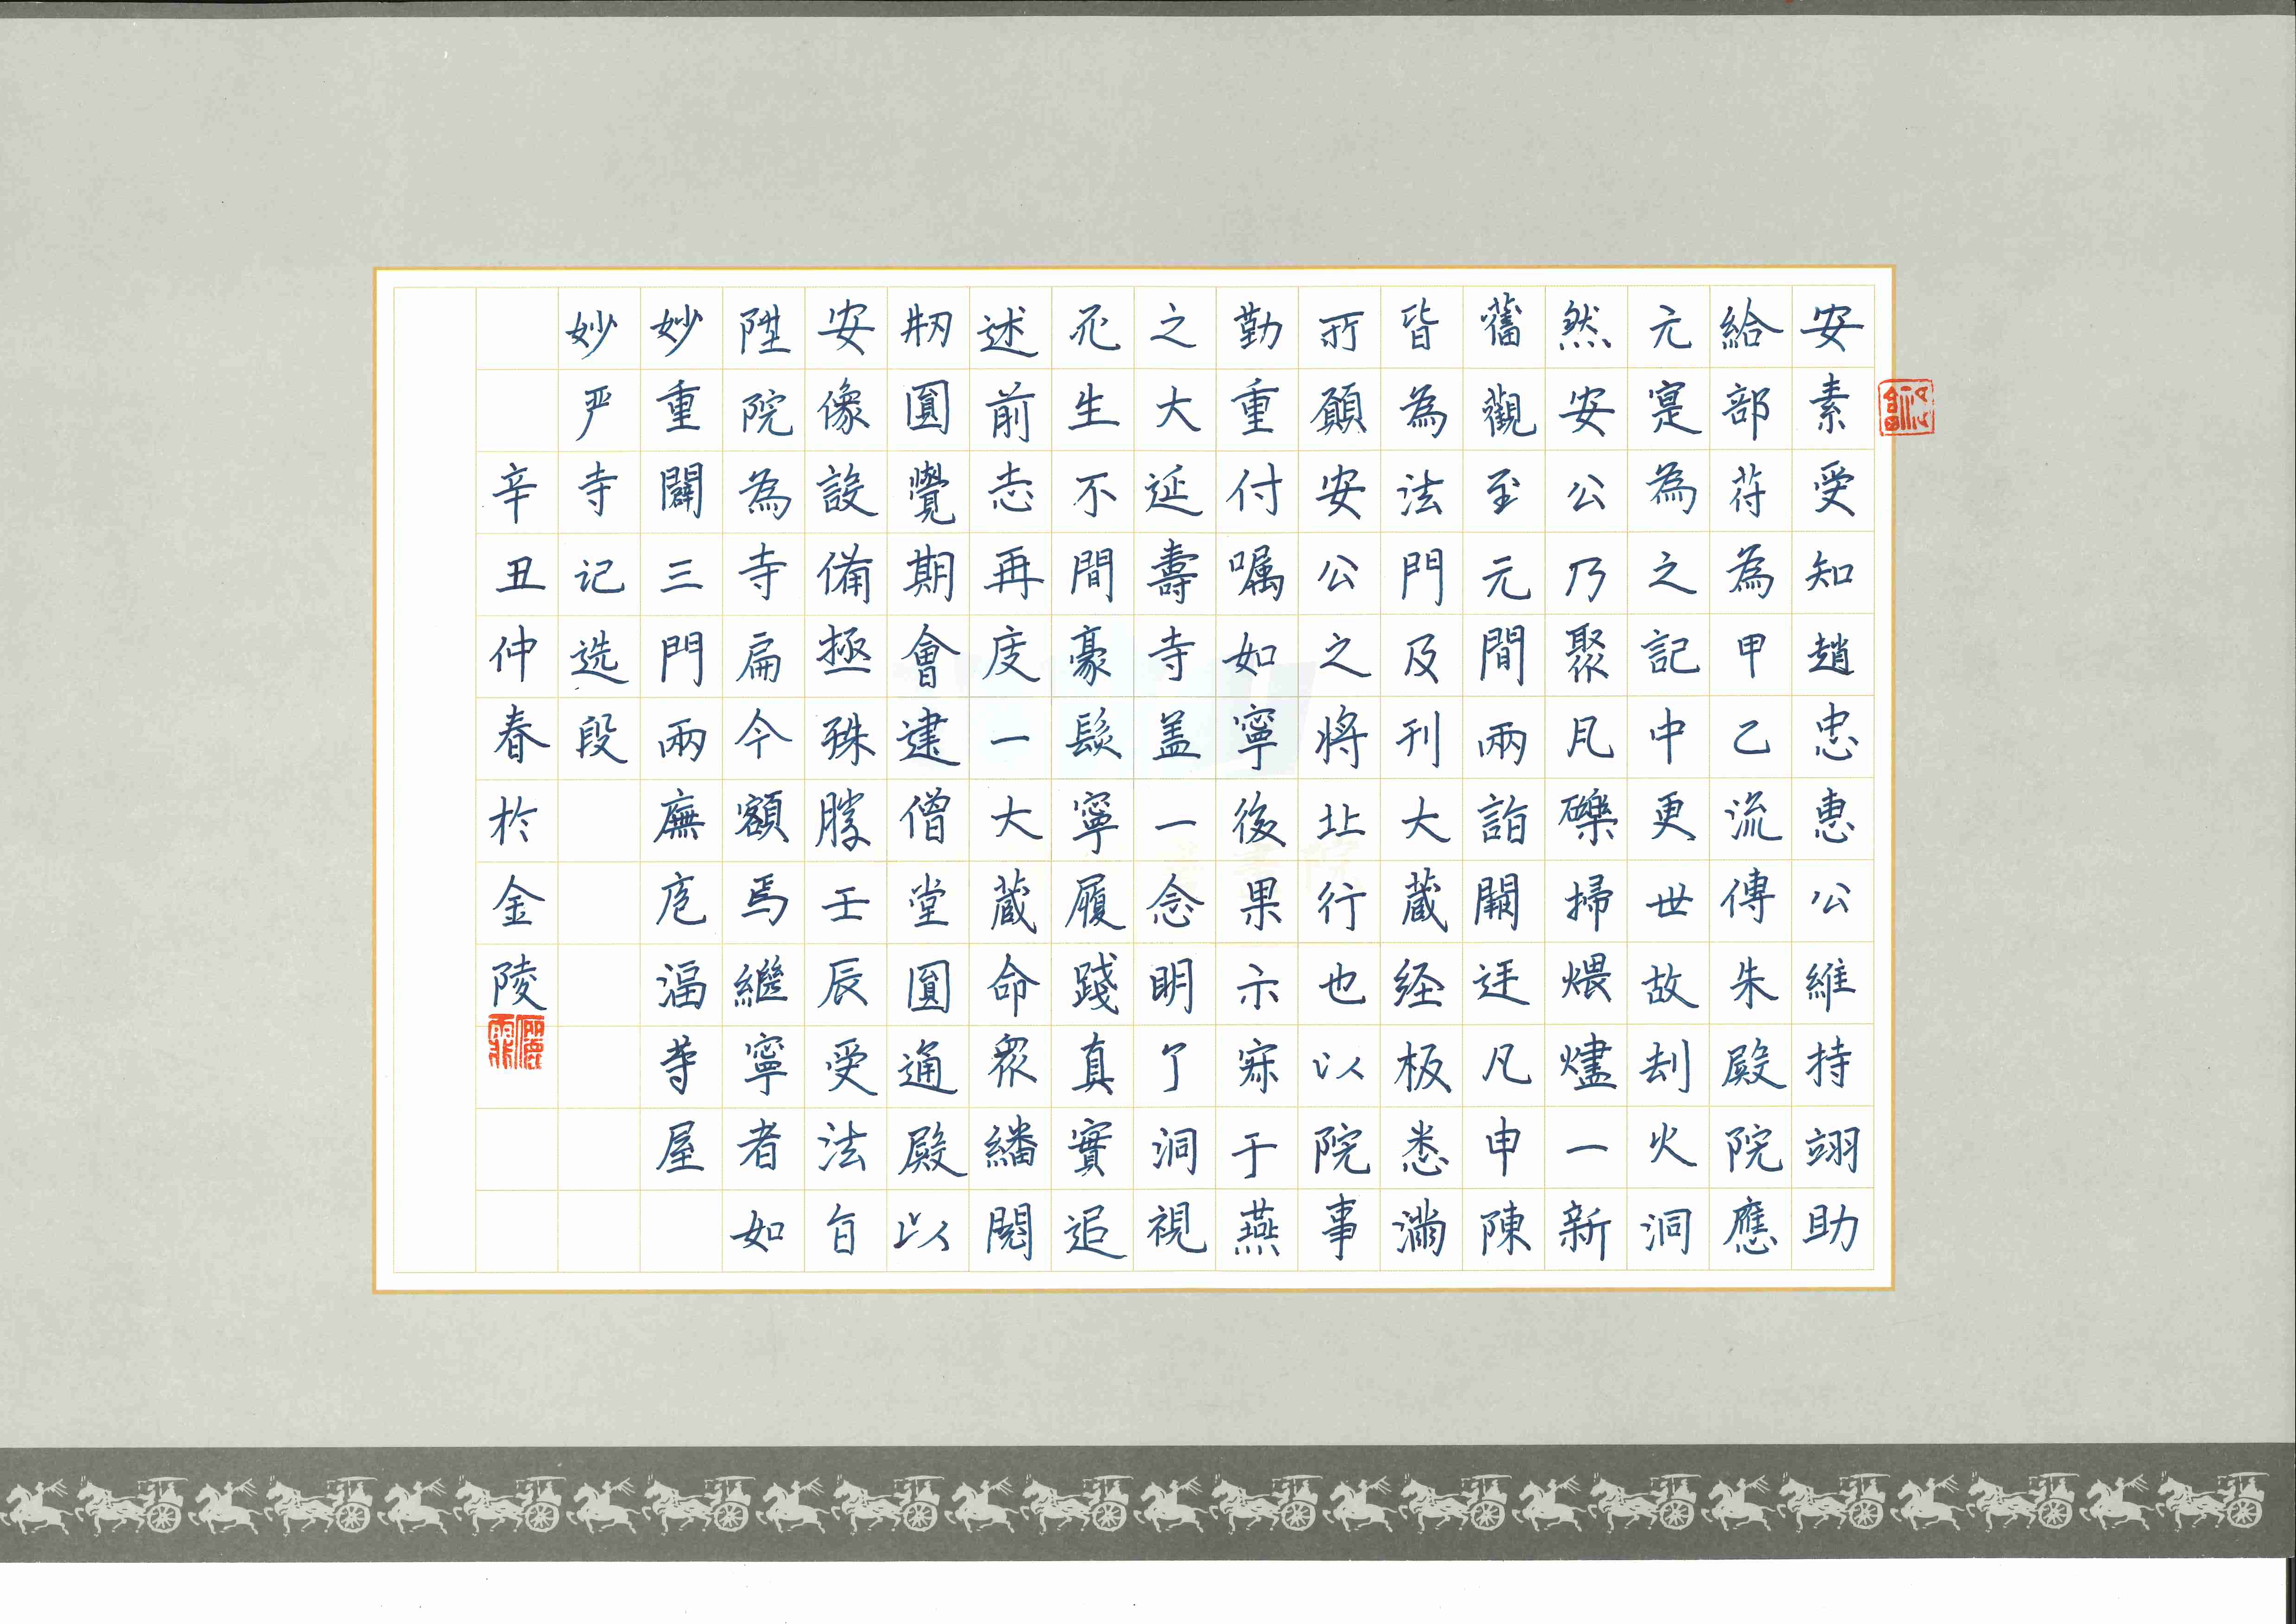 安素受知趙忠惠公維持翊助
給部苻為甲乙流傳朱殿院應
元寔為之記中更世故刧火洞
然安公乃聚凡礫掃煨燼一新
舊觀至元間兩詣闕迋凡申陳
皆為法門及刊大蔵经板悉滿
所願安公之將北行也以院事
勤重付嘱如寧後果示寂于燕
之大延壽寺盖一念明了洞視
死生不間豪髮寧履踐真實追
述前志再度一大蔵命衆繙閱
刱圓覺期會建僧堂圓通殿以
安像設備極殊勝壬辰受法旨
陞院為寺扁今額焉繼寧者如
妙重闢三門兩廡庖湢等屋
妙严寺记选段
辛丑仲春於金陵